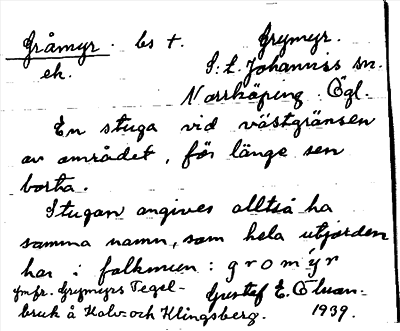 Gråmyr. bs t. Grymyr.
ek. S:t Johanniss sn.
Norrköping. Ögl.
En stuga vid västgränsen
av området, för länge sen
borta.
Stugan angives alltså ha
samma namn, som hela utjorden
har i folkmun: gromýr
Jmfr. Grymyrs Tegel- Gustaf E. Ölvan-
bruk å Kolv- och Klingsberg. 1939.